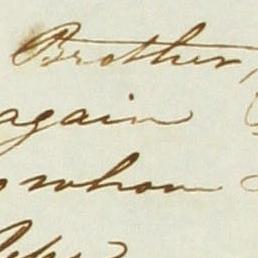 Brother,
again
whom